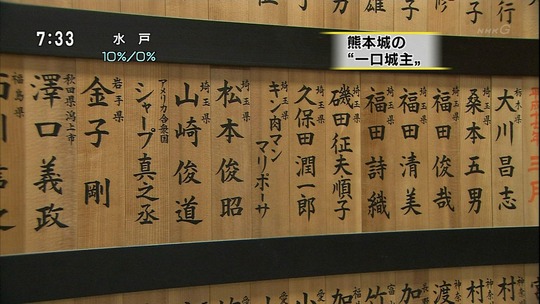 7:33
水戸
10%/0%
熊本城の
“一口城主”
NHK G
行
子
修
雄
栃木県
大川昌志
埼玉県
桑本五男
埼玉県
福田俊哉
福田清美
福田詩織
埼玉県
磯田征夫順子
埼玉県
久保田潤一郎
埼玉県
キン肉マン
マリポーサ
埼玉県
松本俊昭
埼玉県
山崎俊道
アメリカ合衆国
シャープ真之丞
岩手県
金子剛
秋田県潟上市
澤口義政
福島県
村
村
渡
加
竹
加